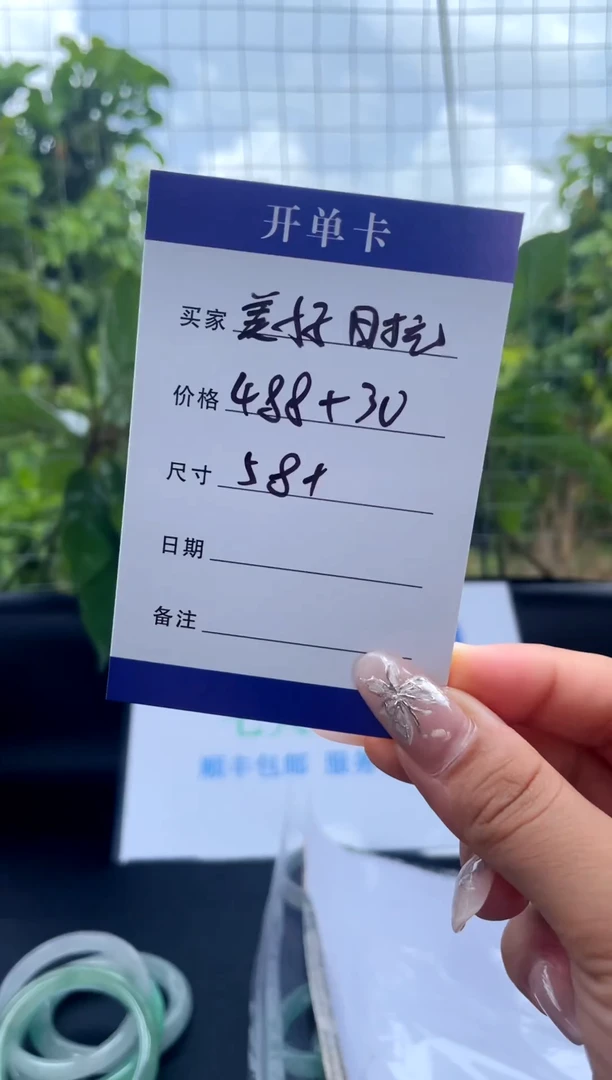 开单卡
买家 美好目拉
价格 488+30
尺寸 58+
日期
备注
顺丰包邮